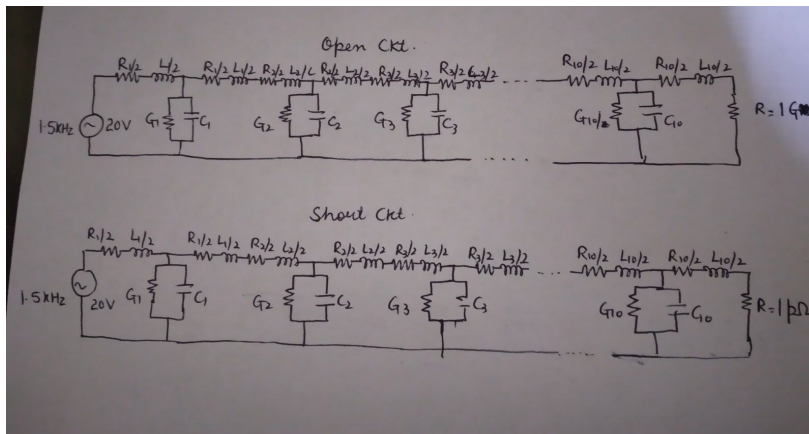 Open Ckt.
R1/2 L/2 R1/2 L1/2 R2/2 L2/2 R2/2 L2/2 R3/2 L3/2 R3/2 L3/2 ...... R10/2 L10/2 R10/2 L10/2
G1 C1 G2 C2 G3 C3 G10/2 C10 R = 1G
1.5kHz 20V
Shout Ckt.
R1/2 L1/2 R1/2 L1/2 R2/2 L2/2 R2/2 L2/2 R3/2 L3/2 R3/2 L3/2 R10/2 L10/2 R10/2 L10/2
G1 C1 G2 C2 G3 C3 G10 C10 R=1pΩ
1.5kHz 20V